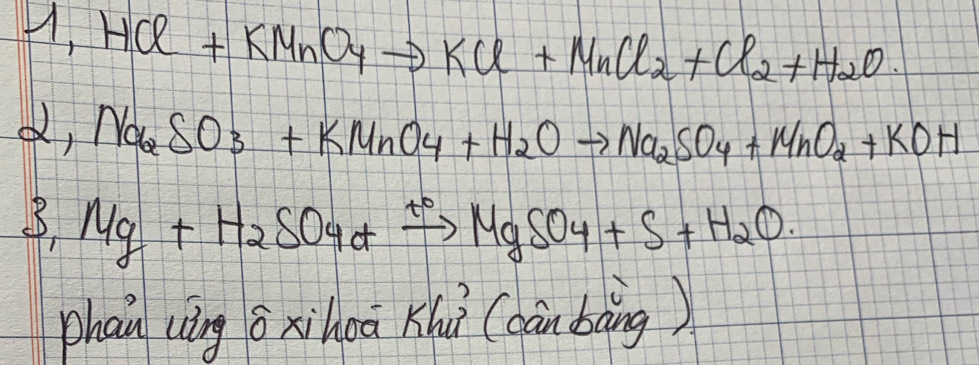 1, HCl + KMnO4 → KCl + MnCl2 + Cl2 + H2O.
2, Na2SO3 + KMnO4 + H2O → Na2SO4 + MnO2 + KOH
3, Mg + H2SO4đ t° → MgSO4 + S + H2O.
phản ứng ôxi hoá khử (cân bằng)